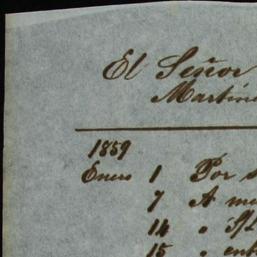 El Señor
Martine
1859
Enero 1 Por s
7 A me
14 " S/
15 " ent